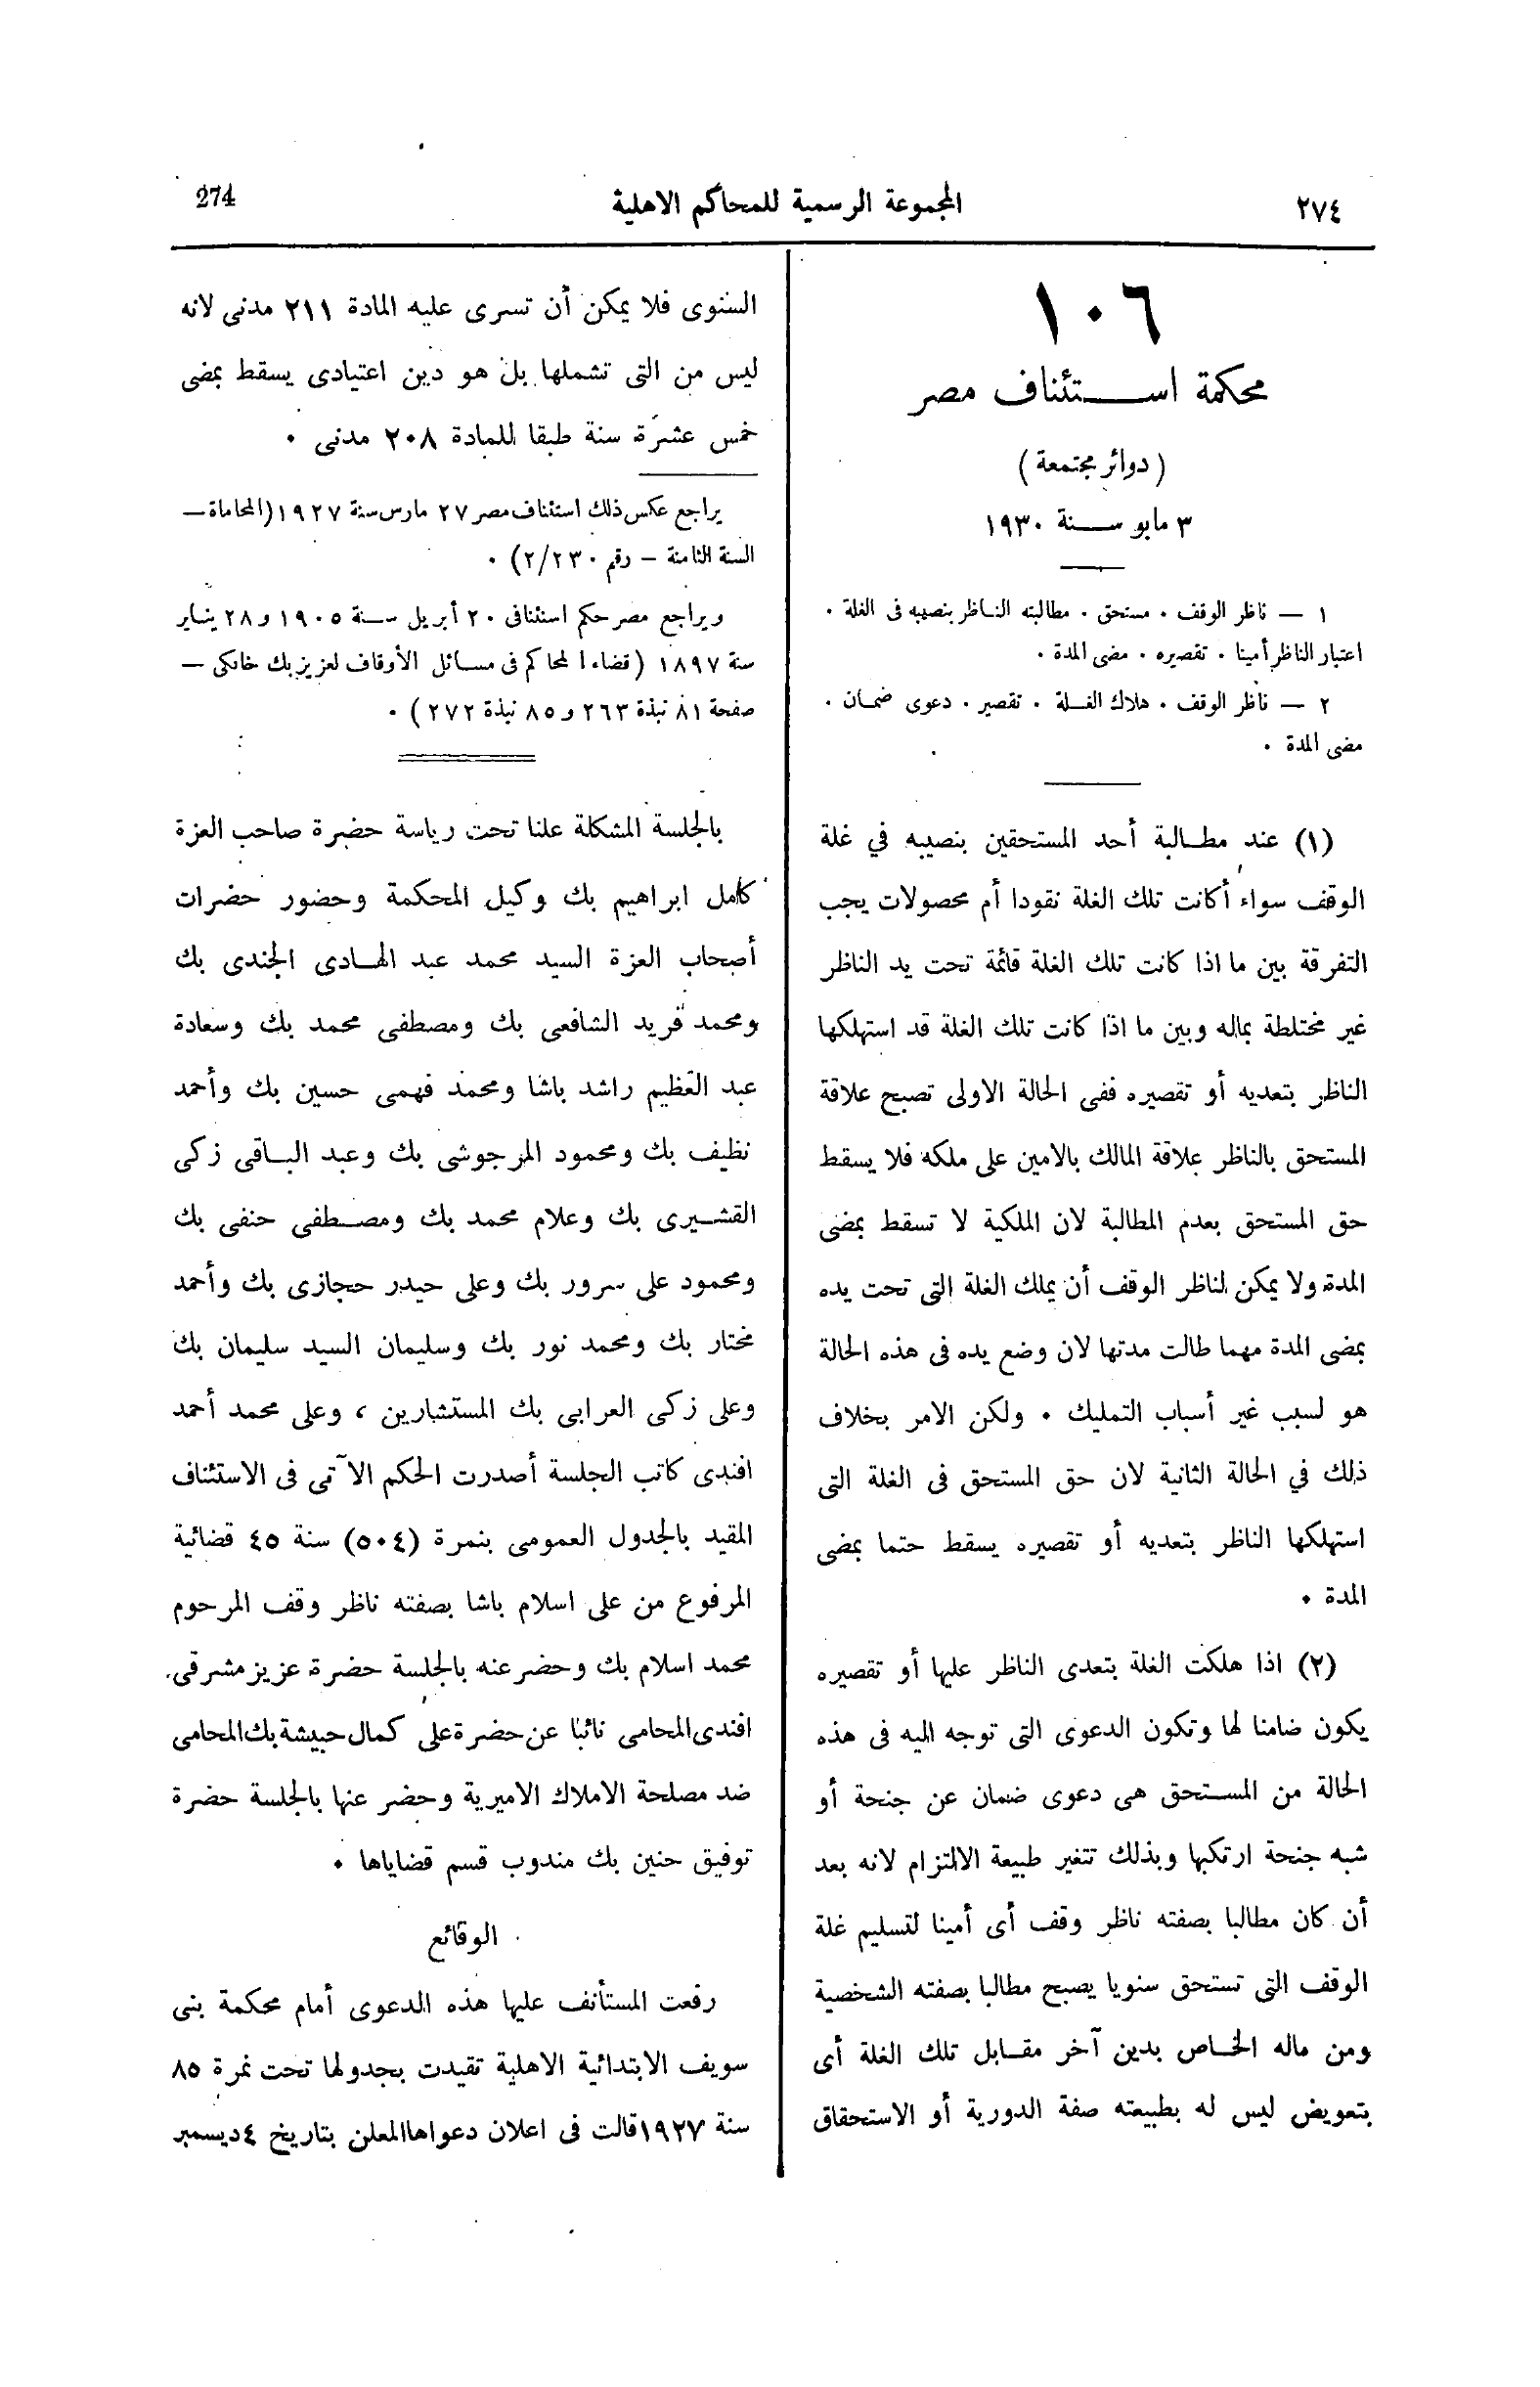 ٢٧٤
المجموعة الرسمية للمحاكم الاهلية
274
١٠٦
محكمة اســتئناف مصر
(دوائر مجتمعة)
٣ مايو ســنة ١٩٣٠
١ — ناظر الوقف . مستحق . مطالبته النـاظر بنصيبه فى الغلة .
اعتبار الناظر أمينا . تقصيره . مضى المدة .
٢ — ناظر الوقف . هلاك الغــلة . تقصير . دعوى ضمـان .
مضى المدة .
(١) عند مطـالبة أحد المستحقين بنصيبه في غلة
الوقف سواء أكانت تلك الغلة نقودا أم محصولات يجب
التفرقة بين ما اذا كانت تلك الغلة قائمة تحت يد الناظر
غير مختلطة بماله وبين ما اذا كانت تلك الغلة قد استهلكها
الناظر بتعديه أو تقصيره ففى الحالة الاولى تصبح علاقة
المستحق بالناظر علاقة المالك بالامين على ملكه فلا يسقط
حق المستحق بعدم المطالبة لان الملكية لا تسقط بمضى
المدة ولا يمكن لناظر الوقف أن يملك الغلة التى تحت يده
بمضى المدة مهما طالت مدتها لان وضع يده فى هذه الحالة
هو لسبب غير أسباب التمليك . ولكن الامر بخلاف
ذلك في الحالة الثانية لان حق المستحق فى الغلة التى
استهلكها الناظر بتعديه أو تقصيره يسقط حتما بمضى
المدة .
(٢) اذا هلكت الغلة بتعدى الناظر عليها أو تقصيره
يكون ضامنا لها وتكون الدعوى التى توجه اليه فى هذه
الحالة من المستحق هى دعوى ضمان عن جنحة أو
شبه جنحة ارتكبها وبذلك تتغير طبيعة الالتزام لانه بعد
أن كان مطالبا بصفته ناظر وقف أى أمينا لتسليم غلة
الوقف التى تستحق سنويا يصبح مطالبا بصفته الشخصية
ومن ماله الخـاص بدين آخر مقـابل تلك الغلة أى
بتعويض ليس له بطبيعته صفة الدورية أو الاستحقاق
السنوى فلا يمكن أن تسرى عليه المادة ٢١١ مدنى لانه
ليس من التى تشملها بل هو دين اعتيادى يسقط بمضى
خمس عشرة سنة طبقا للمادة ٢٠٨ مدنى .
يراجع عكس ذلك استئناف مصر ٢٧ مارس سنة ١٩٢٧ (المحاماة —
السنة الثامنة — رقم ٢/٢٣٠) .
ويراجع مصر حكم استئنافى ٢٠ أبريل ســنة ١٩٠٥ و ٢٨ ينـاير
سنة ١٨٩٧ (قضاء المحاكم فى مسـائل الأوقاف لعزيز بك خانكى —
صفحة ٨١ نبذة ٢٦٣ و ٨٥ نبذة ٢٧٢) .
بالجلسة المشكلة علنا تحت رياسة حضرة صاحب العزة
كامل ابراهيم بك وكيل المحكمة وحضور حضرات
أصحاب العزة السيد محمد عبد الهـادى الجندى بك
ومحمد فريد الشافعى بك ومصطفى محمد بك وسعادة
عبد العظيم راشد باشا ومحمد فهمى حسين بك وأحمد
نظيف بك ومحمود المرجوشى بك وعبد البـاقى زكى
القشــيرى بك وعلام محمد بك ومصــطفى حنفى بك
ومحمود على سرور بك وعلى حيدر حجازى بك وأحمد
مختار بك ومحمد نور بك وسليمان السيد سليمان بك
وعلى زكى العرابى بك المستشارين ، وعلى محمد أحمد
افندى كاتب الجلسة أصدرت الحكم الآتى فى الاستئناف
المقيد بالجدول العمومى بنمرة (٥٠٤) سنة ٤٥ قضائية
المرفوع من على اسلام باشا بصفته ناظر وقف المرحوم
محمد اسلام بك وحضر عنه بالجلسة حضرة عزيز مشرقى
افندى المحامى نائبا عن حضرة على كمال حبيشة بك المحامى
ضد مصلحة الاملاك الاميرية وحضر عنها بالجلسة حضرة
توفيق حنين بك مندوب قسم قضاياها .
الوقائع
رفعت المستأنف عليها هذه الدعوى أمام محكمة بنى
سويف الابتدائية الاهلية تقيدت بجدولها تحت نمرة ٨٥
سنة ١٩٢٧ قالت فى اعلان دعواها المعلن بتاريخ ٤ ديسمبر